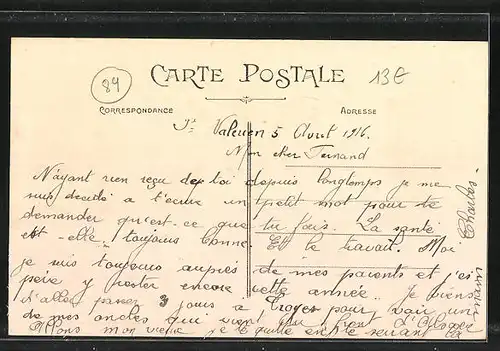 84
CARTE POSTALE
13€
CORRESPONDANCE
ADRESSE
St Valerien 5 Avril 1916.
Mon cher Fernand
N'ayant rien reçu de toi depuis longtemps je me
suis decidé a t'écrire un petit mot pour te
demander qu'est ce que tu fais. La santé
est elle toujours bonne. Et le travail. Moi
je suis toujours auprès de mes parents et j'espère
y rester encore cette année. Je viens
d'aller passer 3 jours a Troyes pour voir un
de mes oncles qui vient du
Allons mon vieux je te quitte en te serrant la